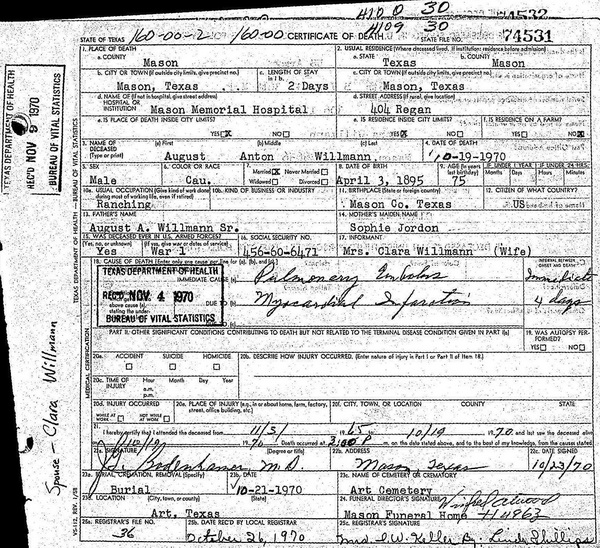 410 0 30
4109 30
74532
STATE OF TEXAS 160-00-2 160-00 CERTIFICATE OF DEATH STATE FILE NO. 74531
1. PLACE OF DEATH
a. COUNTY
Mason
2. USUAL RESIDENCE (Where deceased lived. If institution: residence before admission)
a. STATE
Texas
b. COUNTY
Mason
b. CITY OR TOWN (If outside city limits, give precinct no.)
Mason, Texas
c. LENGTH OF STAY in 1 b.
2 Days
c. CITY OR TOWN (If outside city limits, give precinct no.)
Mason, Texas
d. NAME OF (If not in hospital, give street address) HOSPITAL OR INSTITUTION
Mason Memorial Hospital
d. STREET ADDRESS (If rural, give location)
404 Regan
e. IS PLACE OF DEATH INSIDE CITY LIMITS?
YES X NO
e. IS RESIDENCE INSIDE CITY LIMITS?
YES X NO
f. IS RESIDENCE ON A FARM?
YES NO X
3. NAME OF DECEASED (Type or print)
(a) First (b) Middle (c) Last
August Anton Willmann
4. DATE OF DEATH
10-19-1970
5. SEX
Male
6. COLOR OR RACE
Cau.
7. Married X Never Married
Widowed Divorced
8. DATE OF BIRTH
April 3, 1895
9. AGE (In years last birthday)
75
IF UNDER 1 YEAR
Months Days
IF UNDER 24 HRS.
Hours Min.
10a. USUAL OCCUPATION (Give kind of work done during most of working life, even if retired)
Ranching
10b. KIND OF BUSINESS OR INDUSTRY
11. BIRTHPLACE (State or foreign country)
Mason Co. Texas
12. CITIZEN OF WHAT COUNTRY?
US
13. FATHER'S NAME
August A. Willmann Sr.
14. MOTHER'S MAIDEN NAME
Sophie Jordon
15. WAS DECEASED EVER IN U.S. ARMED FORCES?
(Yes, no, or unknown) (If yes, give war or dates of service)
Yes War 1
16. SOCIAL SECURITY NO.
456-60-6471
17. INFORMANT
Mrs. Clara Willmann (Wife)
18. CAUSE OF DEATH (Enter only one cause per line for (a), (b), and (c).)
INTERVAL BETWEEN ONSET AND DEATH
IMMEDIATE CAUSE (a) Pulmonary Embolus Immediate
DUE TO (b) Myocardial Infarction 4 days
above cause (a), stating the under-
TEXAS DEPARTMENT OF HEALTH
REC'D NOV 4 1970
BUREAU OF VITAL STATISTICS
PART II. OTHER SIGNIFICANT CONDITIONS CONTRIBUTING TO DEATH BUT NOT RELATED TO THE TERMINAL DISEASE CONDITION GIVEN IN PART I(a)
19. WAS AUTOPSY PERFORMED?
YES NO
20a. ACCIDENT SUICIDE HOMICIDE
20b. DESCRIBE HOW INJURY OCCURRED. (Enter nature of injury in Part I or Part II of Item 18.)
20c. TIME OF INJURY
Hour Month Day Year
a.m.
p.m.
20d. INJURY OCCURRED
WHILE AT WORK NOT WHILE AT WORK
20e. PLACE OF INJURY (e.g., in or about home, farm, factory, street, office building, etc.)
20f. CITY, TOWN, OR LOCATION COUNTY STATE
21. I hereby certify that I attended the deceased from 11/31 1965 to 10/19 1970 and last saw the deceased alive
on 10/19 1970. Death occurred at 3:00 P m. on the date stated above, and to the best of my knowledge, from the causes stated.
22a. SIGNATURE (Degree or title)
Bodenhamer M.D.
22b. ADDRESS
Mason Texas
22c. DATE SIGNED
10/23/70
23a. BURIAL, CREMATION, REMOVAL (Specify)
Burial
23b. DATE
10-21-1970
23c. NAME OF CEMETERY OR CREMATORY
Art Cemetery
23d. LOCATION (City, town, or county) (State)
Art, Texas
24. FUNERAL DIRECTOR'S SIGNATURE
Mason Funeral Home #4963
25a. REGISTRAR'S FILE NO.
36
25b. DATE REC'D BY LOCAL REGISTRAR
October 26, 1970
25c. REGISTRAR'S SIGNATURE
Mrs. J.W. Keller By Lindy Phillips
TEXAS DEPARTMENT OF HEALTH
REC'D NOV 9 1970
BUREAU OF VITAL STATISTICS
TEXAS DEPARTMENT OF HEALTH - BUREAU OF VITAL STATISTICS
MEDICAL CERTIFICATION
VS-112, REV. 1/58
Spouse - Clara Willmann